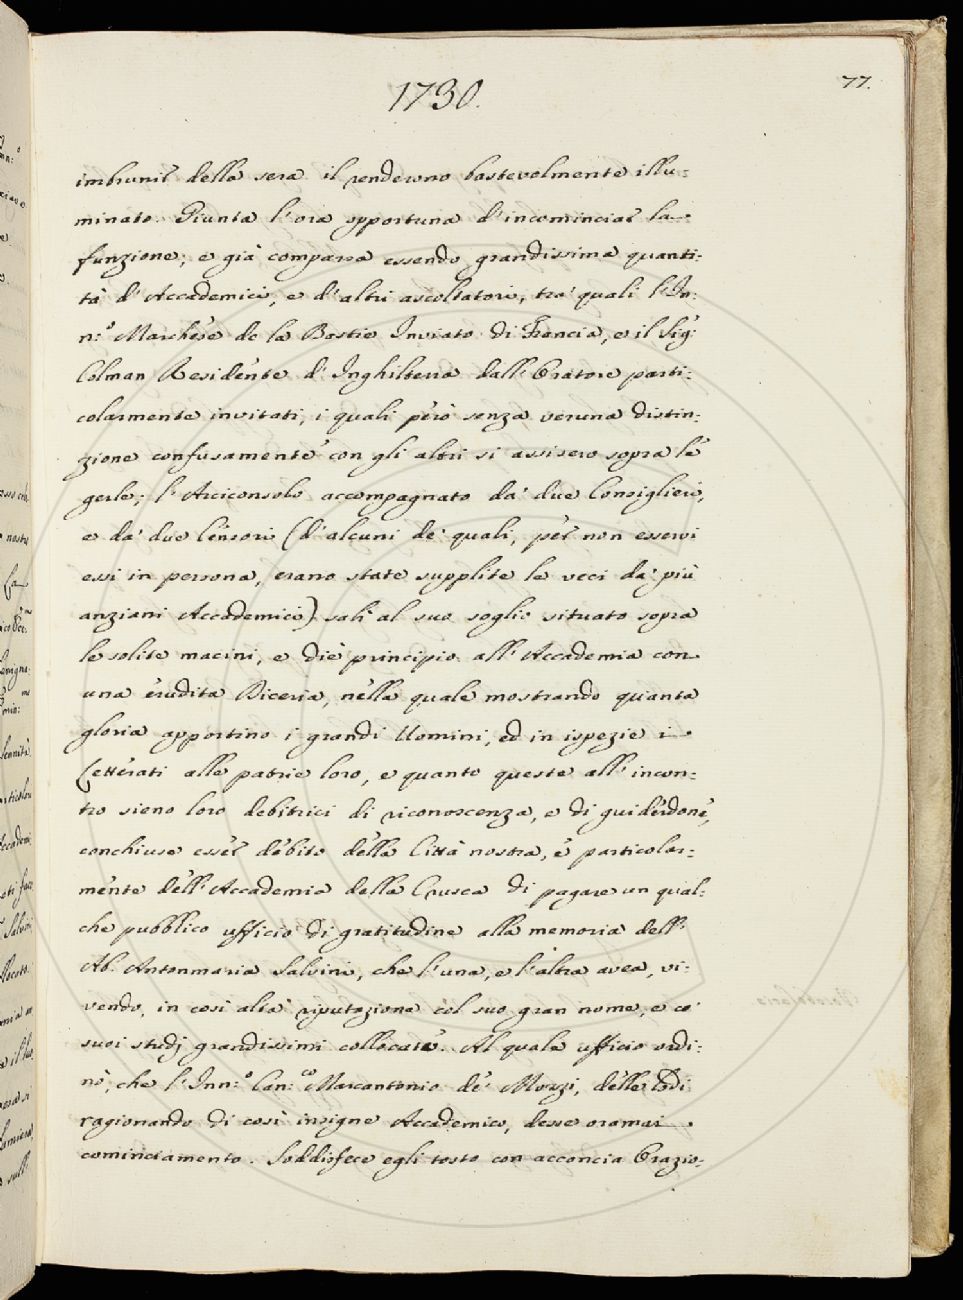 1730.
77.
imbrunir della sera il renderono bastevolmente illu:
minato. Giunta l'ora opportuna d'incominciar la
funzione; e già comparsa essendo grandissima quanti:
tà d'Accademici, e d'altri ascoltatori, tra' quali l'In:
n:o Marchese de la Bastie Inviato di Francia, e il Sig:
Colman Residente d'Inghilterra dall'Oratore parti:
colarmente invitati, i quali però senza veruna distin:
zione confusamente con gli altri si assisero sopra le
gerle; l'Arciconsolo accompagnato da' due Consiglieri,
e da' due Censori (d'alcuni de' quali, per non esservi
essi in persona, erano state supplite le veci da' più
anziani Accademici) salì al suo soglio situato sopra
le solite macini, e diè principio all'Accademia con
una erudita Diceria, nella quale mostrando quanta
gloria apportino i grandi Uomini, ed in ispezie i
Letterati alle patrie loro, e quanto queste all'incon:
tro sieno loro debitrici di riconoscenza, e di guiderdone,
conchiuse esser debito della Città nostra, e particolar:
mente dell'Accademia della Crusca di pagare un qual:
che pubblico ufficio di gratitudine alla memoria dell'
Ab. Antonmaria Salvini, che l'una, e l'altra avea, vi:
vendo, in così alta riputazione col suo gran nome, e co'
suoi studj grandissimi collocate. Al quale ufficio ordi:
nò, che l'Inn:o Can:co Marcantonio de' Mozzi, delle Lodi
ragionando di così insigne Accademico, desse oramai
cominciamento. Soddisfece egli tosto con acconcia Orazio: